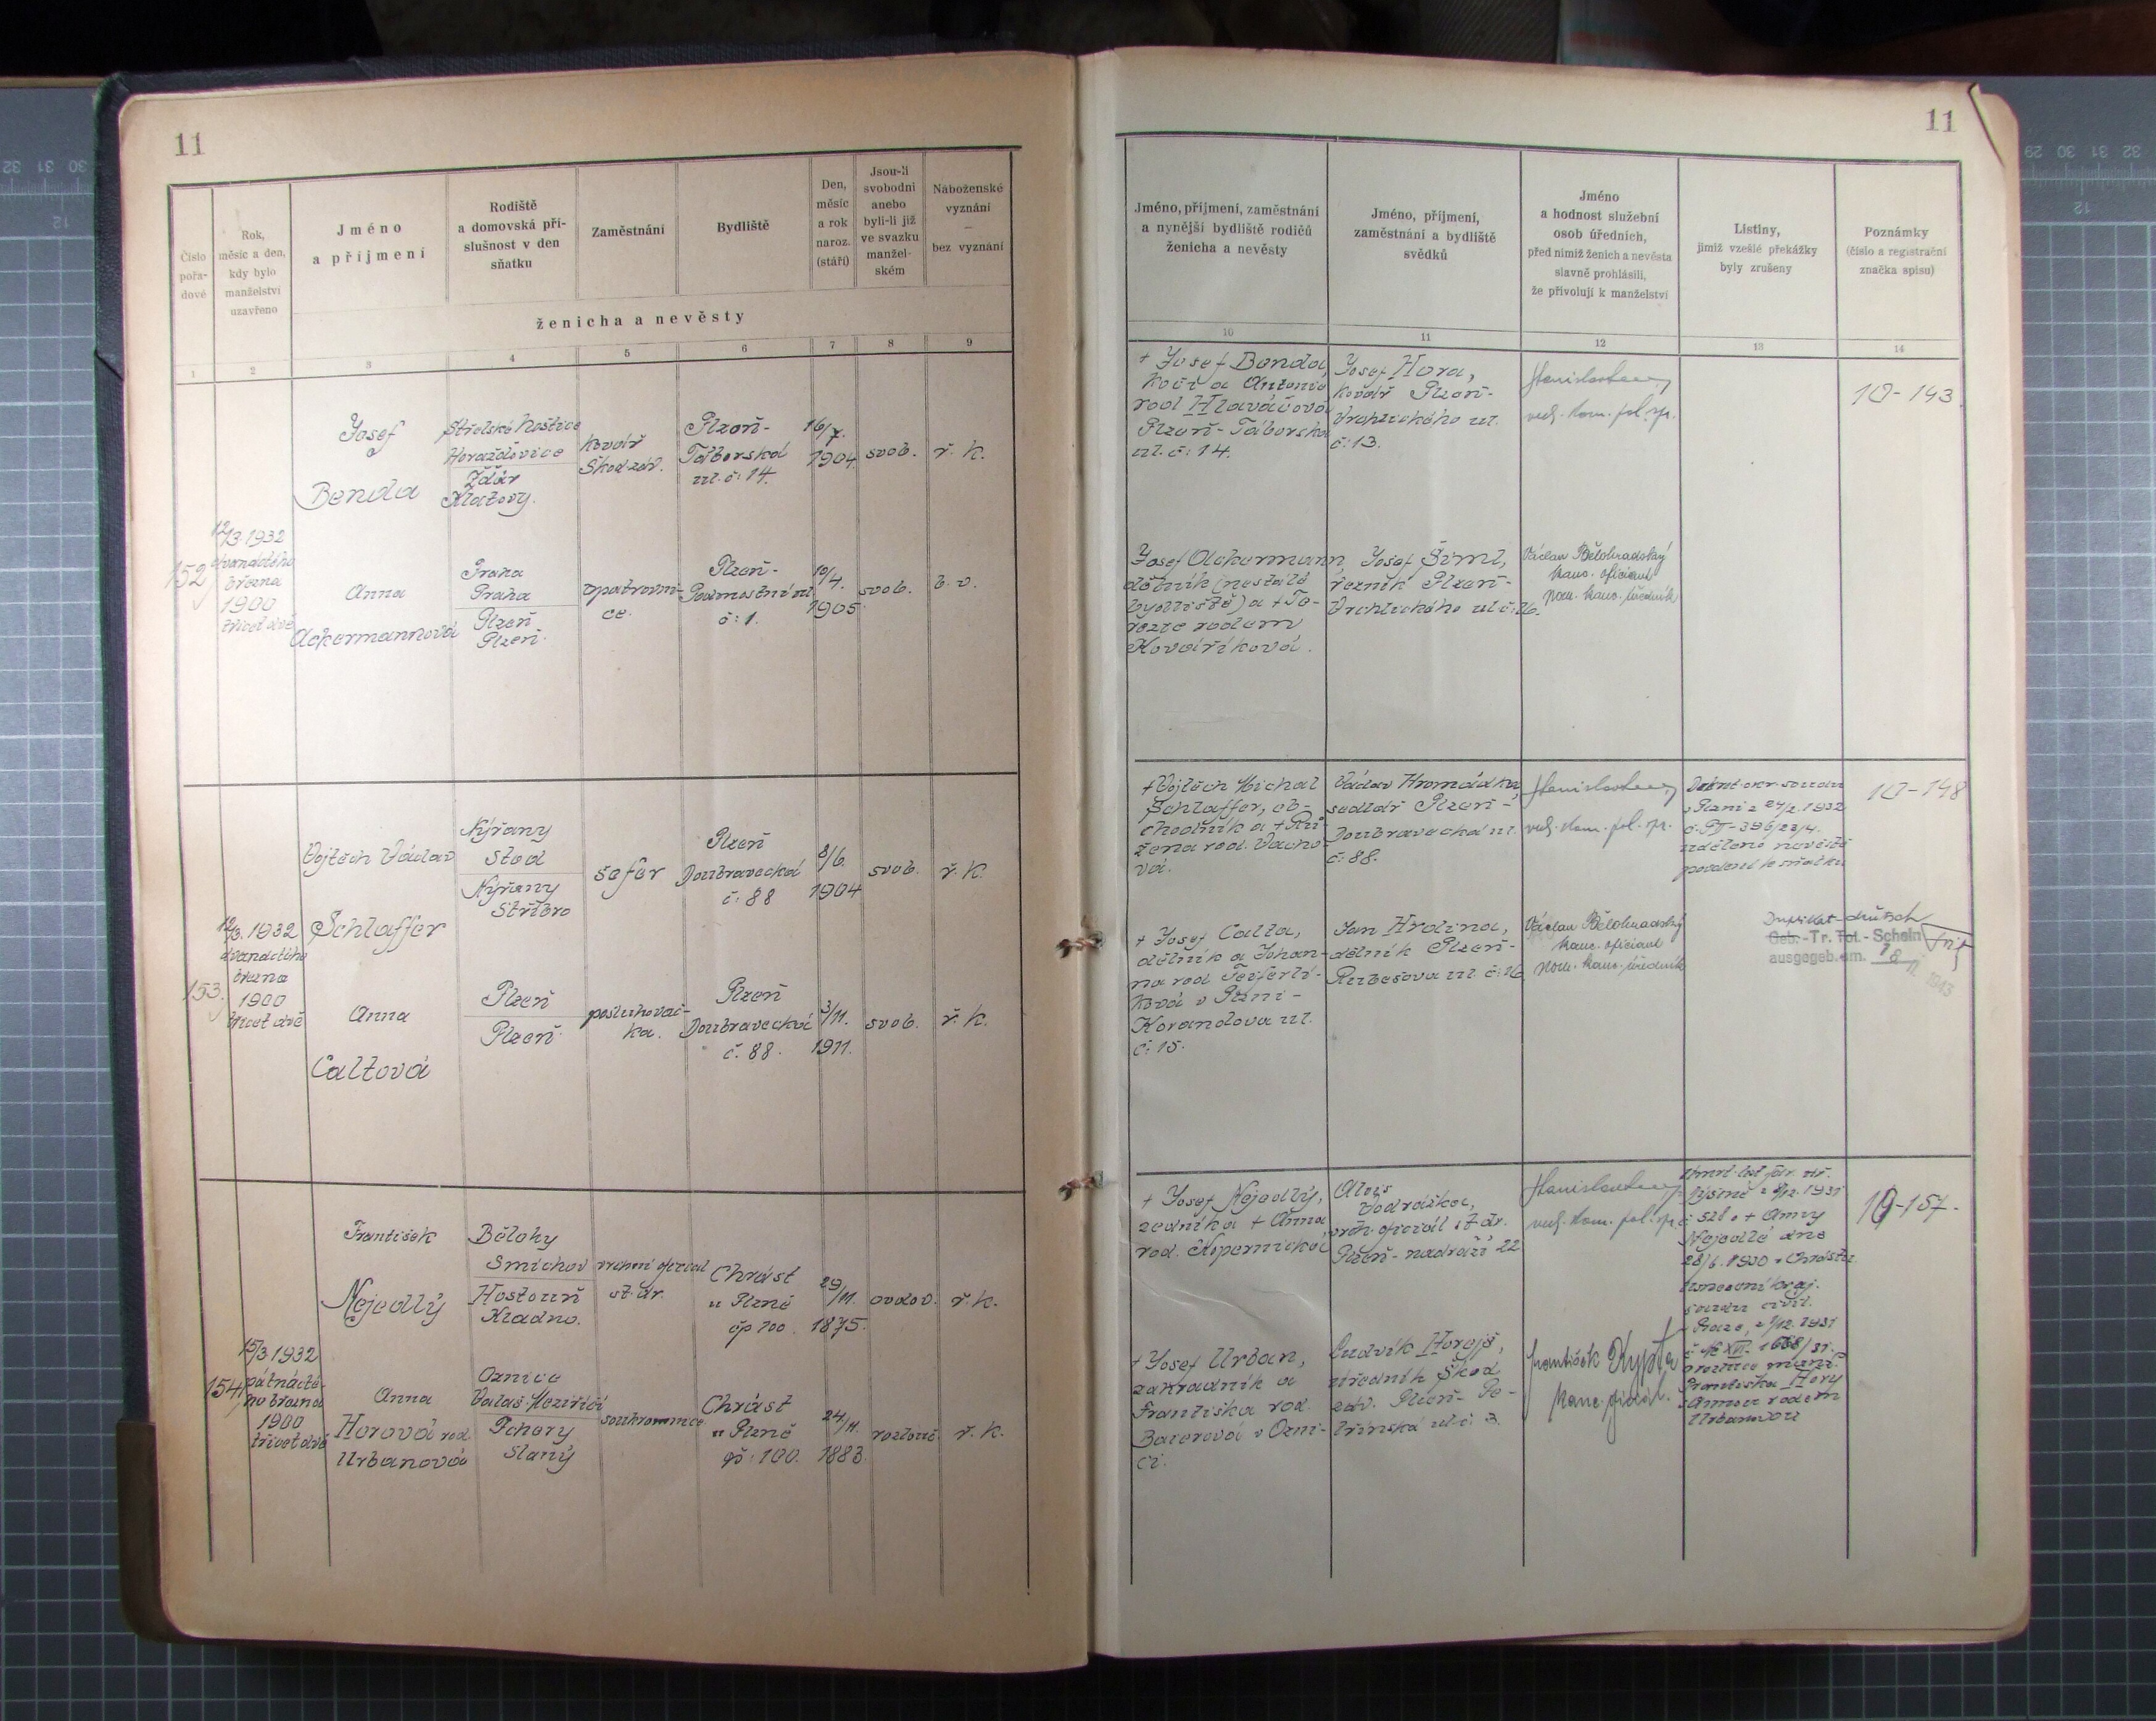 11
Číslo pořa-dové
Rok,
měsíc a den,
kdy bylo
manželství
uzavřeno
Jméno
a příjmení
Rodiště
a domovská pří-
slušnost v den
sňatku
Zaměstnání
Bydliště
Den,
měsíc
a rok
naroz.
(stáří)
Jsou-li
svobodni
anebo
byli-li již
ve svazku
manžel-
ském
Náboženské
vyznání
–
bez vyznání
ženicha a nevěsty
1 2 3 4 5 6 7 8 9
152
12/3. 1932
dvanáctého
března
1900
třicet dvě
Josef
Benda
Střelské Hoštice
Horažďovice
Žďár
Klatovy.
kovář
Škod. záv.
Plzeň-
Táborská
ul. č: 14.
16/7.
1904
svob.
ř. k.
Anna
Ackermannová
Praha
Praha
Plzeň
Plzeň.
opatrovni-
ce.
Plzeň-
Podmostní ul
č: 1.
10/4.
1905
svob.
b. v.
153.
12/3. 1932
dvanáctého
března
1900
třicet dvě
Vojtěch Václav
Schlaffer
Nýřany
Stod
Nýřany
Stříbro
šofer
Plzeň
Doubravecká
č: 88
8/6.
1904
svob.
ř. k.
Anna
Caltová
Plzeň
Plzeň.
posluhovač-
ka.
Plzeň
Doubravecká
č. 88.
3/11.
1911.
svob.
ř. k.
154
15/3 1932
patnácté-
ho března
1900
třicet dvě
František
Nejedlý
Běloky
Smíchov
Hostouň
Kladno.
vrchní oficiál
st. dr.
Chrást
u Plzně
čp 100.
29/11.
1875.
ovdov.
ř. k.
Anna
Horová rod.
Urbanová
Oznice
Valaš. Meziříčí
Pchery
Slaný
soukromnice
Chrást
u Plzně
čp: 100.
24/11.
1883
rozlouč.
ř. k.
11
Jméno, příjmení, zaměstnání
a nynější bydliště rodičů
ženicha a nevěsty
Jméno, příjmení,
zaměstnání a bydliště
svědků
Jméno
a hodnost služební
osob úředních,
před nimiž ženich a nevěsta
slavně prohlásili,
že přivolují k manželství
Listiny,
jimiž vzešlé překážky
byly zrušeny
Poznámky
(číslo a registrační
značka spisu)
10 11 12 13 14
+ Josef Benda,
kočí a Antonie
rod Hlaváčová
Plzeň-Táborská
ul. č: 14.
Josef Hora,
kovář Plzeň-
Vrchlického ul.
č: 13.
10-143.
Josef Ackermann
dělník (nestálé
bydliště) a + Te-
rezie rodem
Kovaříková.
Josef Šiml,
řezník Plzeň-
Vrchlického ul č: 26.
Václav Bělohradský
kanc. oficiant
+ Vojtěch Michal
Schlaffer, ob-
chodník a + Rů-
žena rod. Vacho-
vá.
Václav Hromádka,
sedlář Plzeň-
Doubravecká ul.
č: 88.
Dekret okr. soudu
v Plzni z 24/2. 1932
udělené nevěstě
povolení k sňatku
10-148
+ Josef Calta,
dělník a Johan-
na rod
v Plzni-
Korandova ul.
č: 15.
Jan Hrdina,
dělník Plzeň-
Rubešova ul č: 16
Václav Bělohradský
kanc. oficiant
Duplikat-deutsch
Geb.-Tr. Tot.-Schein
ausgegeb. am.
1943
+ Josef Nejedlý,
zedník a + Anna
rod. Kopernická
Alois
Vodrážka,
vrch. oficiál st. dr.
Plzeň-nádraží 22
Nejedlé dne
28/6. 1930 v Chrástu
Usnesení kraj.
soudu civil.
v Praze, z 1/12. 1931
10-157.
+ Josef Urban,
zahradník a
Františka rod.
Baierová v Ozni-
ci.
Ludvík Horejš,
úředník Škod.
záv. Plzeň- Pe-
třínská ul č: 3.
František Kypta
kanc. oficiál.
Františka Hory
s Annou rodem
Urbanovou